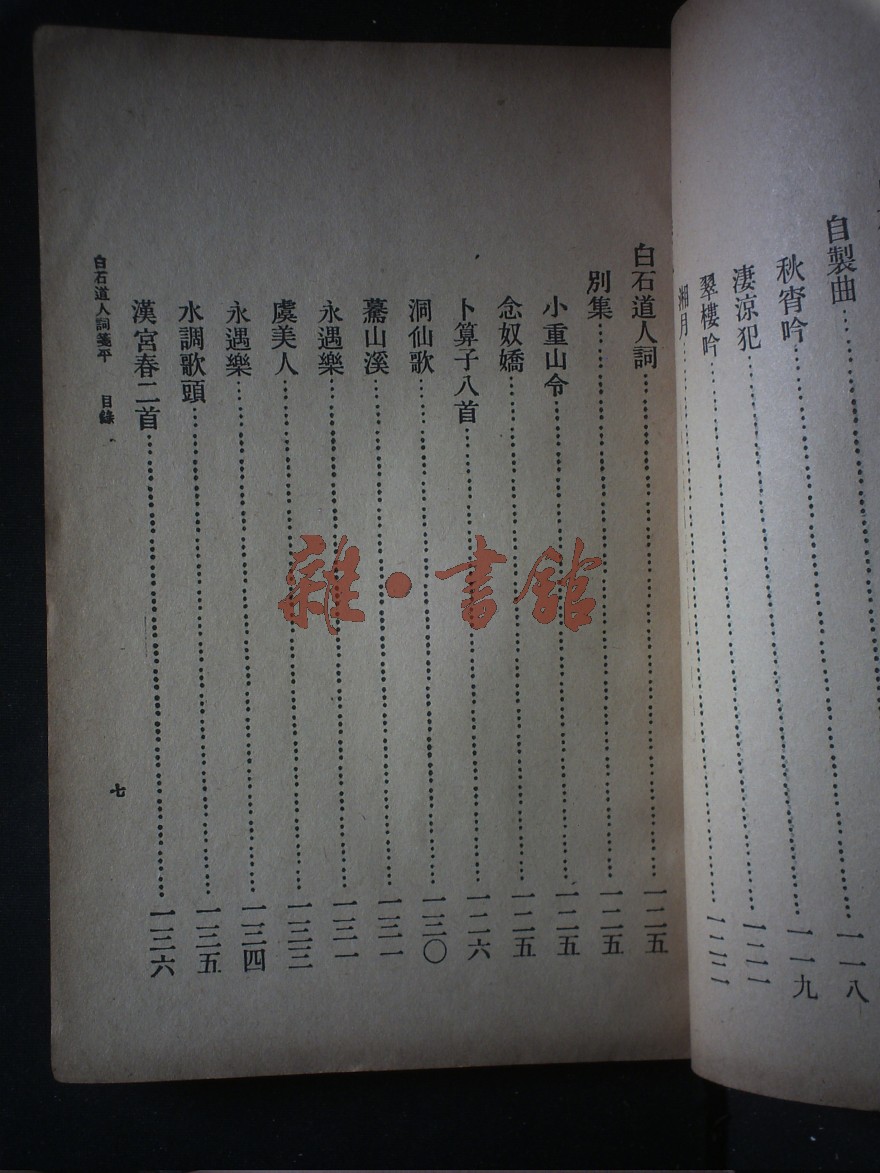 自製曲……一一八
秋宵吟……一一九
淒涼犯……一二一
翠樓吟……一二二
湘月
白石道人詞……一二五
別集……一二五
小重山令……一二五
念奴嬌……一二五
卜算子八首……一二六
洞仙歌……一三〇
驀山溪……一三一
永遇樂……一三一
虞美人……一三三
永遇樂……一三四
水調歌頭……一三五
漢宮春二首……一三六
白石道人詞箋平 目錄
七
雜·書館